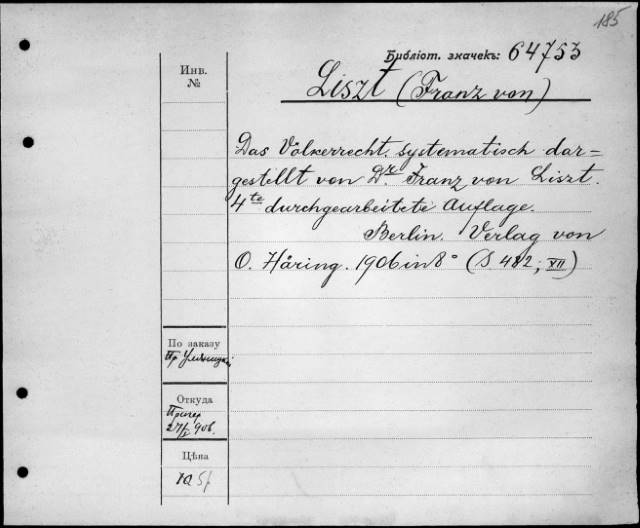 185
Библіот. значекъ: 64753
Инв.
№
Liszt (Franz von)
Das Völkerrecht. systematisch dar=
gestellt von Dr. Franz von Liszt.
4te durchgearbeitete Auflage.
Berlin. Verlag von
O. Häring. 1906 in 8° (S 482, VII)
По заказу
Пр
Откуда
27/X 906.
Цѣна
10